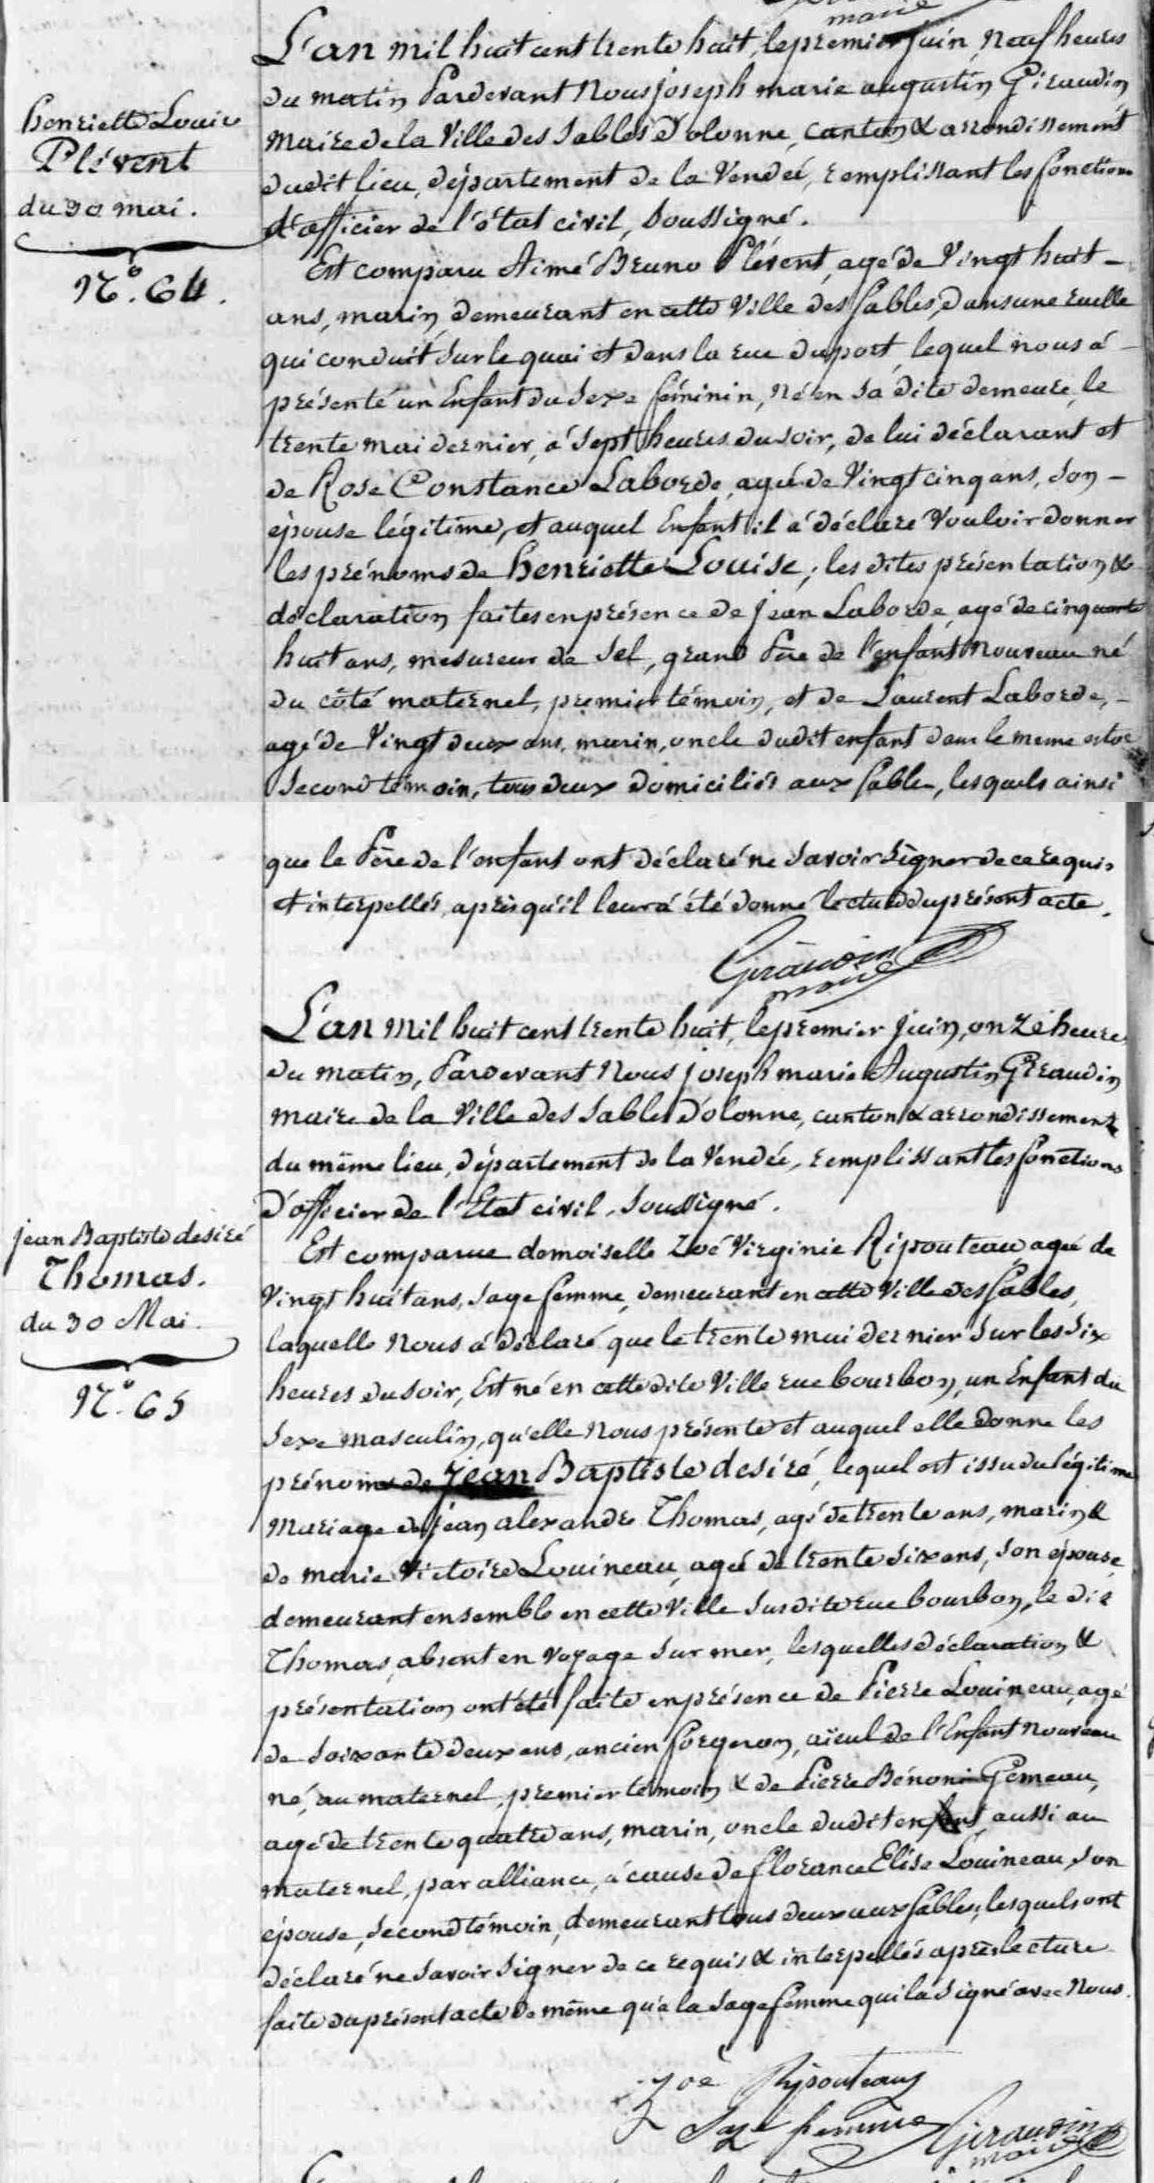 maire
L'an mil huit cent trente huit, le premier juin, Neuf heures
du matin Pardevant Nous joseph marie augustin Giraudin
Maire de la Ville des Sables d'olonne, canton & arrondissement
dudit lieu, département de la Vendée, remplissant les fonctions
d'officier de l'état civil, Soussigné.
henriette Louise
Plévent
du 30 mai.
N°. 64.
Est comparu Aimé Bruno Plévent, agé de Vingt huit
ans, marin, demeurant en cette Ville des Sables, dans une ruelle
qui conduit sur le quai et dans la rue du port, lequel nous á
présenté un Enfant du Sexe féminin, né en sa dite demeure, le
trente mai dernier, á Sept heures du soir, de lui déclarant et
de Rose Constance Laborde, agée de Vingt cinq ans, Son
épouse légitime, et auquel Enfant il á déclaré Vouloir donner
les prénoms de henriette Louise; les dites présentation &
déclaration faites en présence de jean Laborde, agé de cinquante
huit ans, mesureur de Sel, grand Père de l'enfant Nouveau né
du côté maternel, premier témoin, et de Laurent Laborde,
agé de Vingt deux ans, marin, oncle dudit enfant dans le meme estoc
Second témoin, tous deux domiciliés aux Sables, lesquels ainsi
que le Père de l'enfant ont déclaré ne Savoir Signer de ce requis
et interpellés, après qu'il leur á été donné lecture du présent acte.
Giraudin
maire
L'an Mil huit cent trente huit, le premier juin, onze heures
du matin, Pardevant Nous joseph marie Augustin Giraudin
maire de la Ville des Sables d'olonne, canton & arrondissement
du même lieu, département de la Vendée, remplissant les fonctions
d'officier de l'Etat civil, Soussigné.
jean Baptiste desiré
Thomas.
du 30 Mai.
N°. 65
Est comparue demoiselle Zoé Virginie Ripouteau, agée de
Vingt huit ans, Sage femme, demeurant en cette Ville des Sables,
laquelle Nous á déclaré que le trente mai dernier Sur les Six
heures du soir, Est né en cette dite Ville rue bourbon, un Enfant du
Sexe masculin, qu'elle Nous présente et auquel elle donne les
prénoms de jean Baptiste desiré, lequel est issu du légitime
Mariage de jean alexandre Thomas, agé de trente ans, marin &
de marie Victoire Louineau, agée de trente Six ans, Son épouse,
demeurant ensemble en cette Ville Susdite rue bourbon, le dit
Thomas, absent en voyage Sur mer, lesquelles déclaration &
présentation ont été faite en présence de Pierre Louineau, agé
de Soixante deux ans, ancien forgeron, aïeul de l'Enfant Nouveau
né, au maternel, premier témoin & de Pierre Bénoni Gémeau,
agé de trente quatre ans, marin, oncle dudit enfant, aussi au
maternel, par alliance, á cause de florance Elise Louineau, Son
épouse, Second témoin, demeurant tous deux aux Sables; lesquels ont
déclaré ne Savoir Signer de ce requis & interpellés après lecture
faite du présent acte de même qu'á la Sage femme qui l'á Signé avec Nous.
Zoé Ripouteau
Sage femme
Giraudin
maire